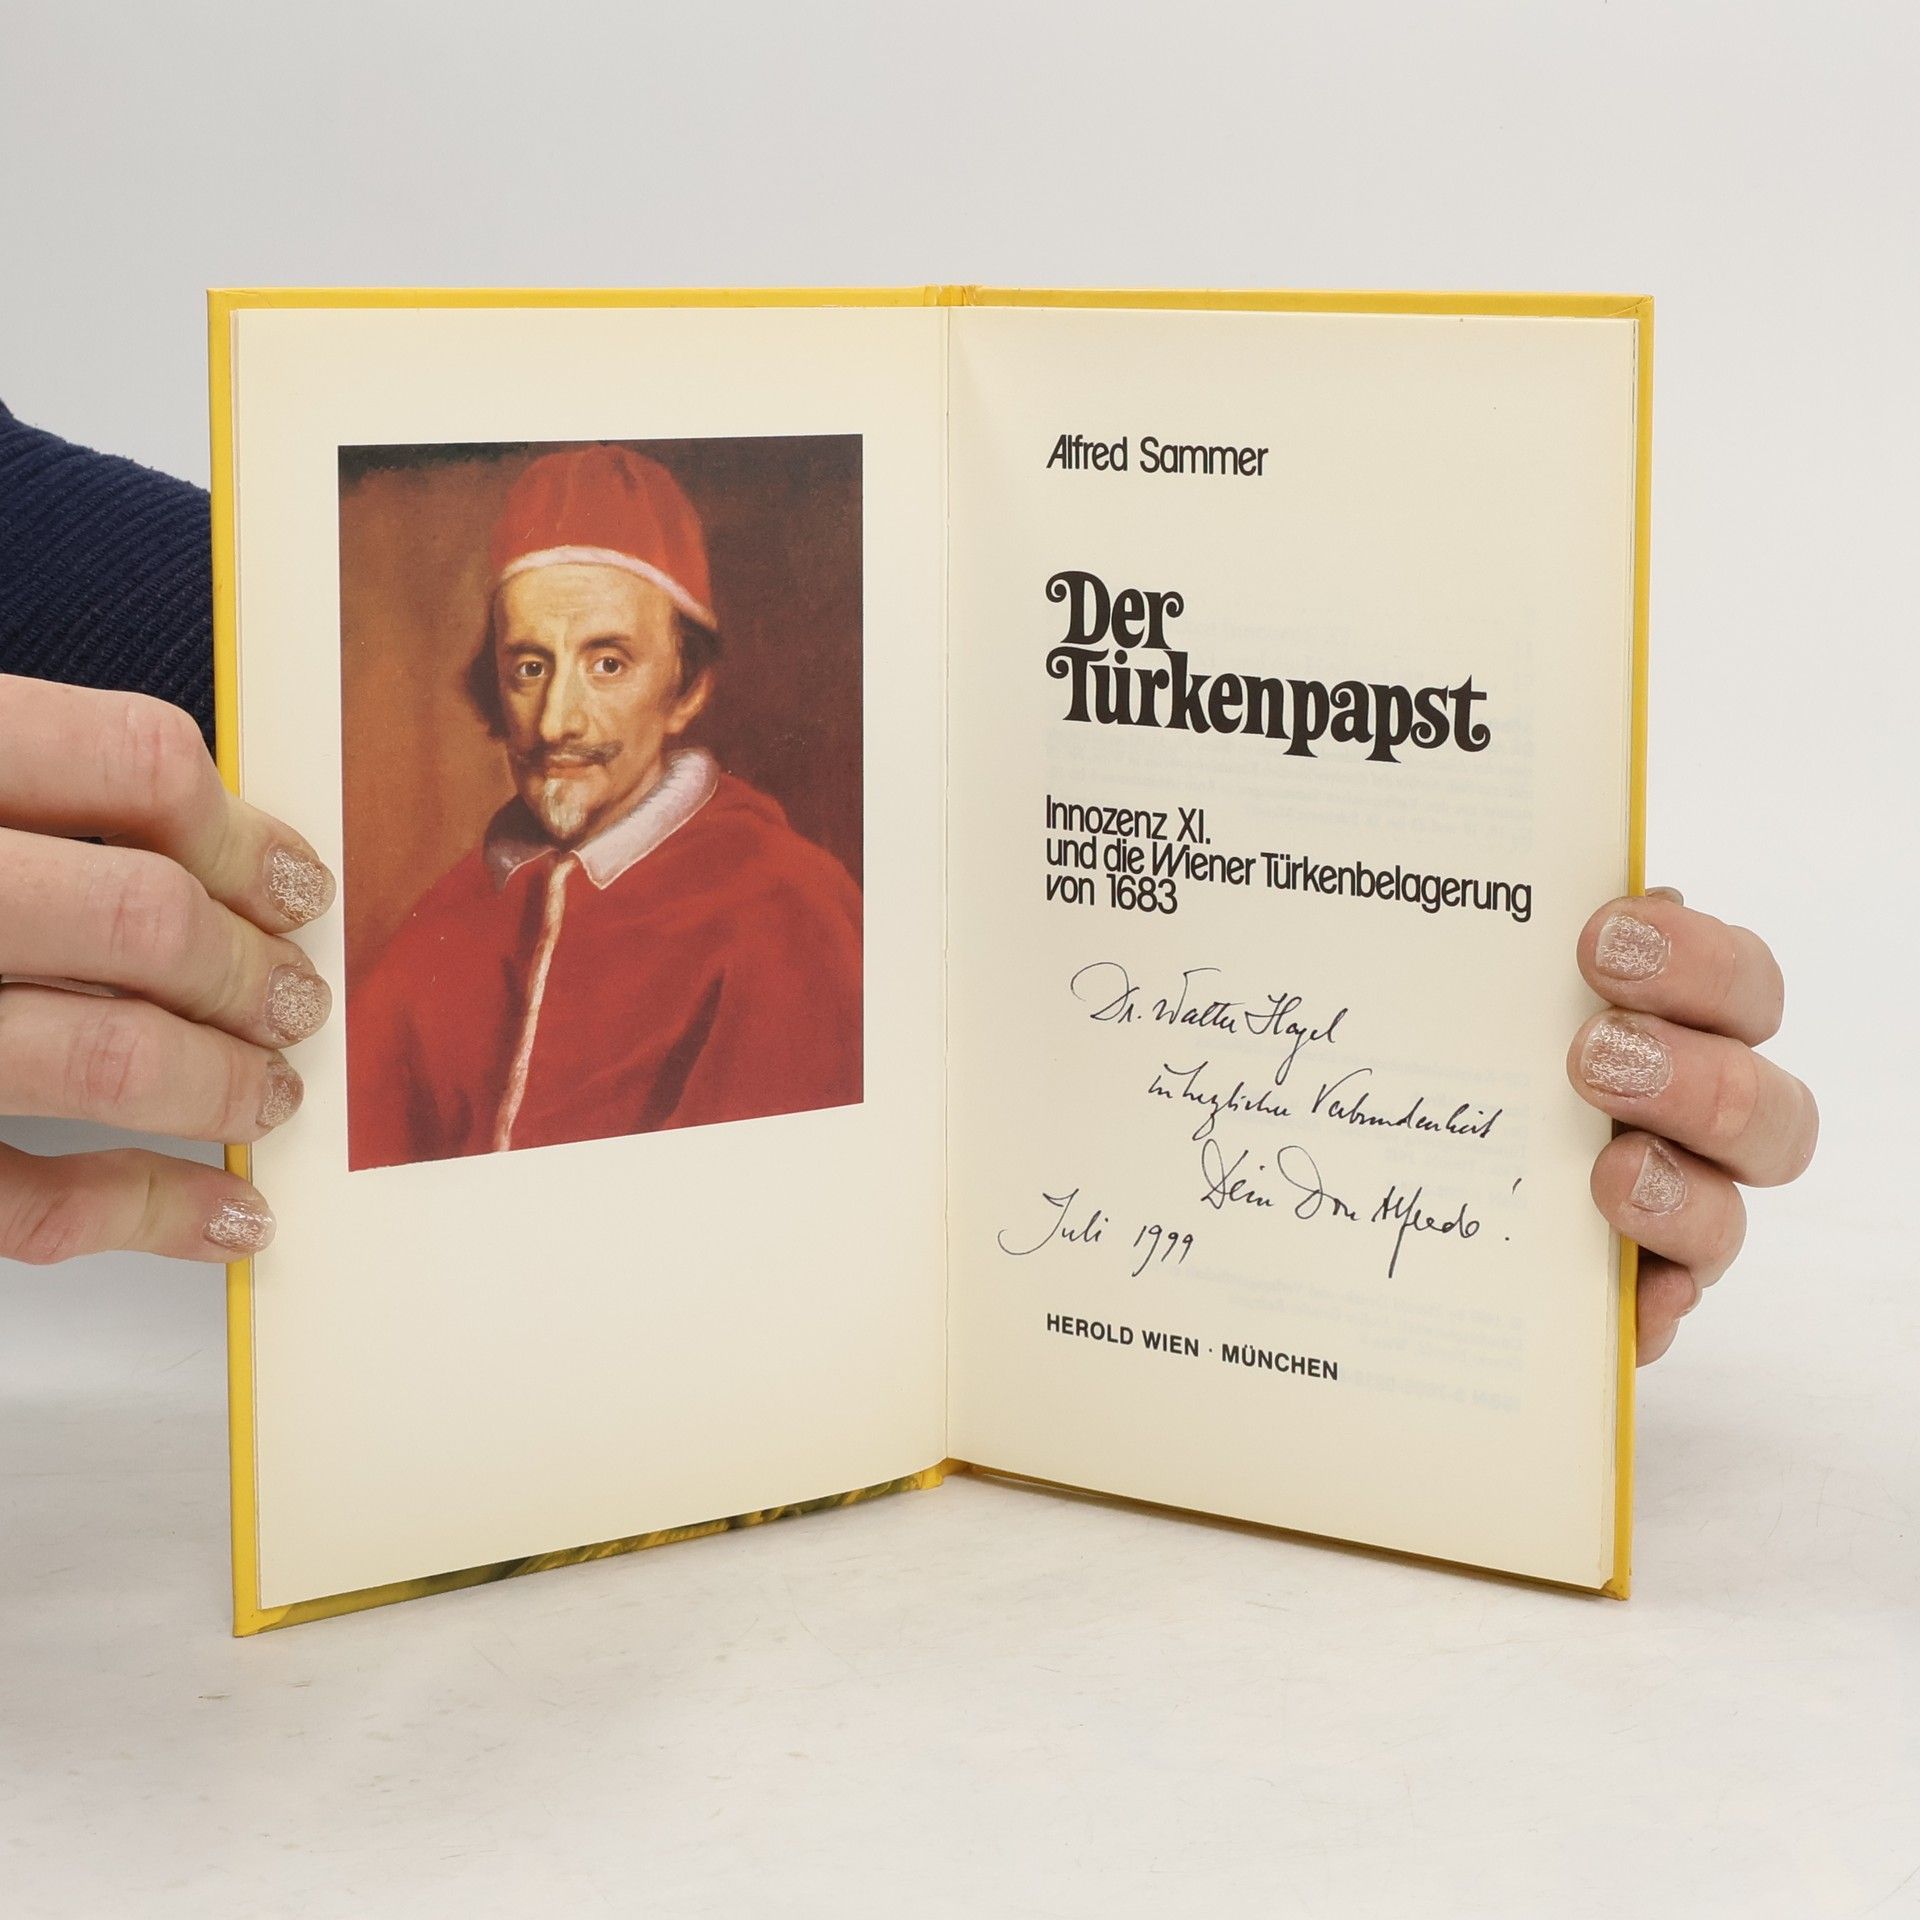 Alfred Sammer
Der
Türkenpapst
Innozenz XI.
und die Wiener Türkenbelagerung
von 1683
Dr. Walter Hagel
in herzlicher Verbundenheit
Dein Don Alfredo!
Juli 1999
HEROLD WIEN · MÜNCHEN